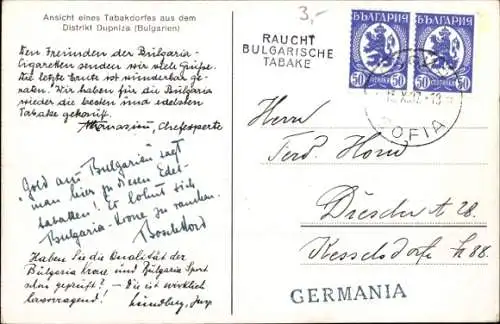 Ansicht eines Tabakdorfes aus dem
Distrikt Dupniza (Bulgarien)
3,-
Den Freunden der Bulgaria-
Cigaretten senden wir viele Grüsse.
Die letzte Ernte ist wunderbar ge-
raten! Wir haben für die Bulgaria
wieder die besten und edelsten
Tabake gekauft.
Chefexperte
"Gold aus Bulgarien" sagt
man hier zu diesen Edel-
tabaken! Es lohnt sich
Bulgaria-Krone zu rauchen.
Haben Sie die Qualität der
Bulgaria Krone und Bulgaria Sport
schon geprüft? – Die ist wirklich
hervorragend!
RAUCHT
BULGARISCHE
TABAKE
БЪЛГАРИЯ
50 50
БЪЛГАРИЯ
50 50
SOFIA
Herrn
Ferd. Horn
Dresden A 28.
Kesselsdorf. Str 88.
GERMANIA